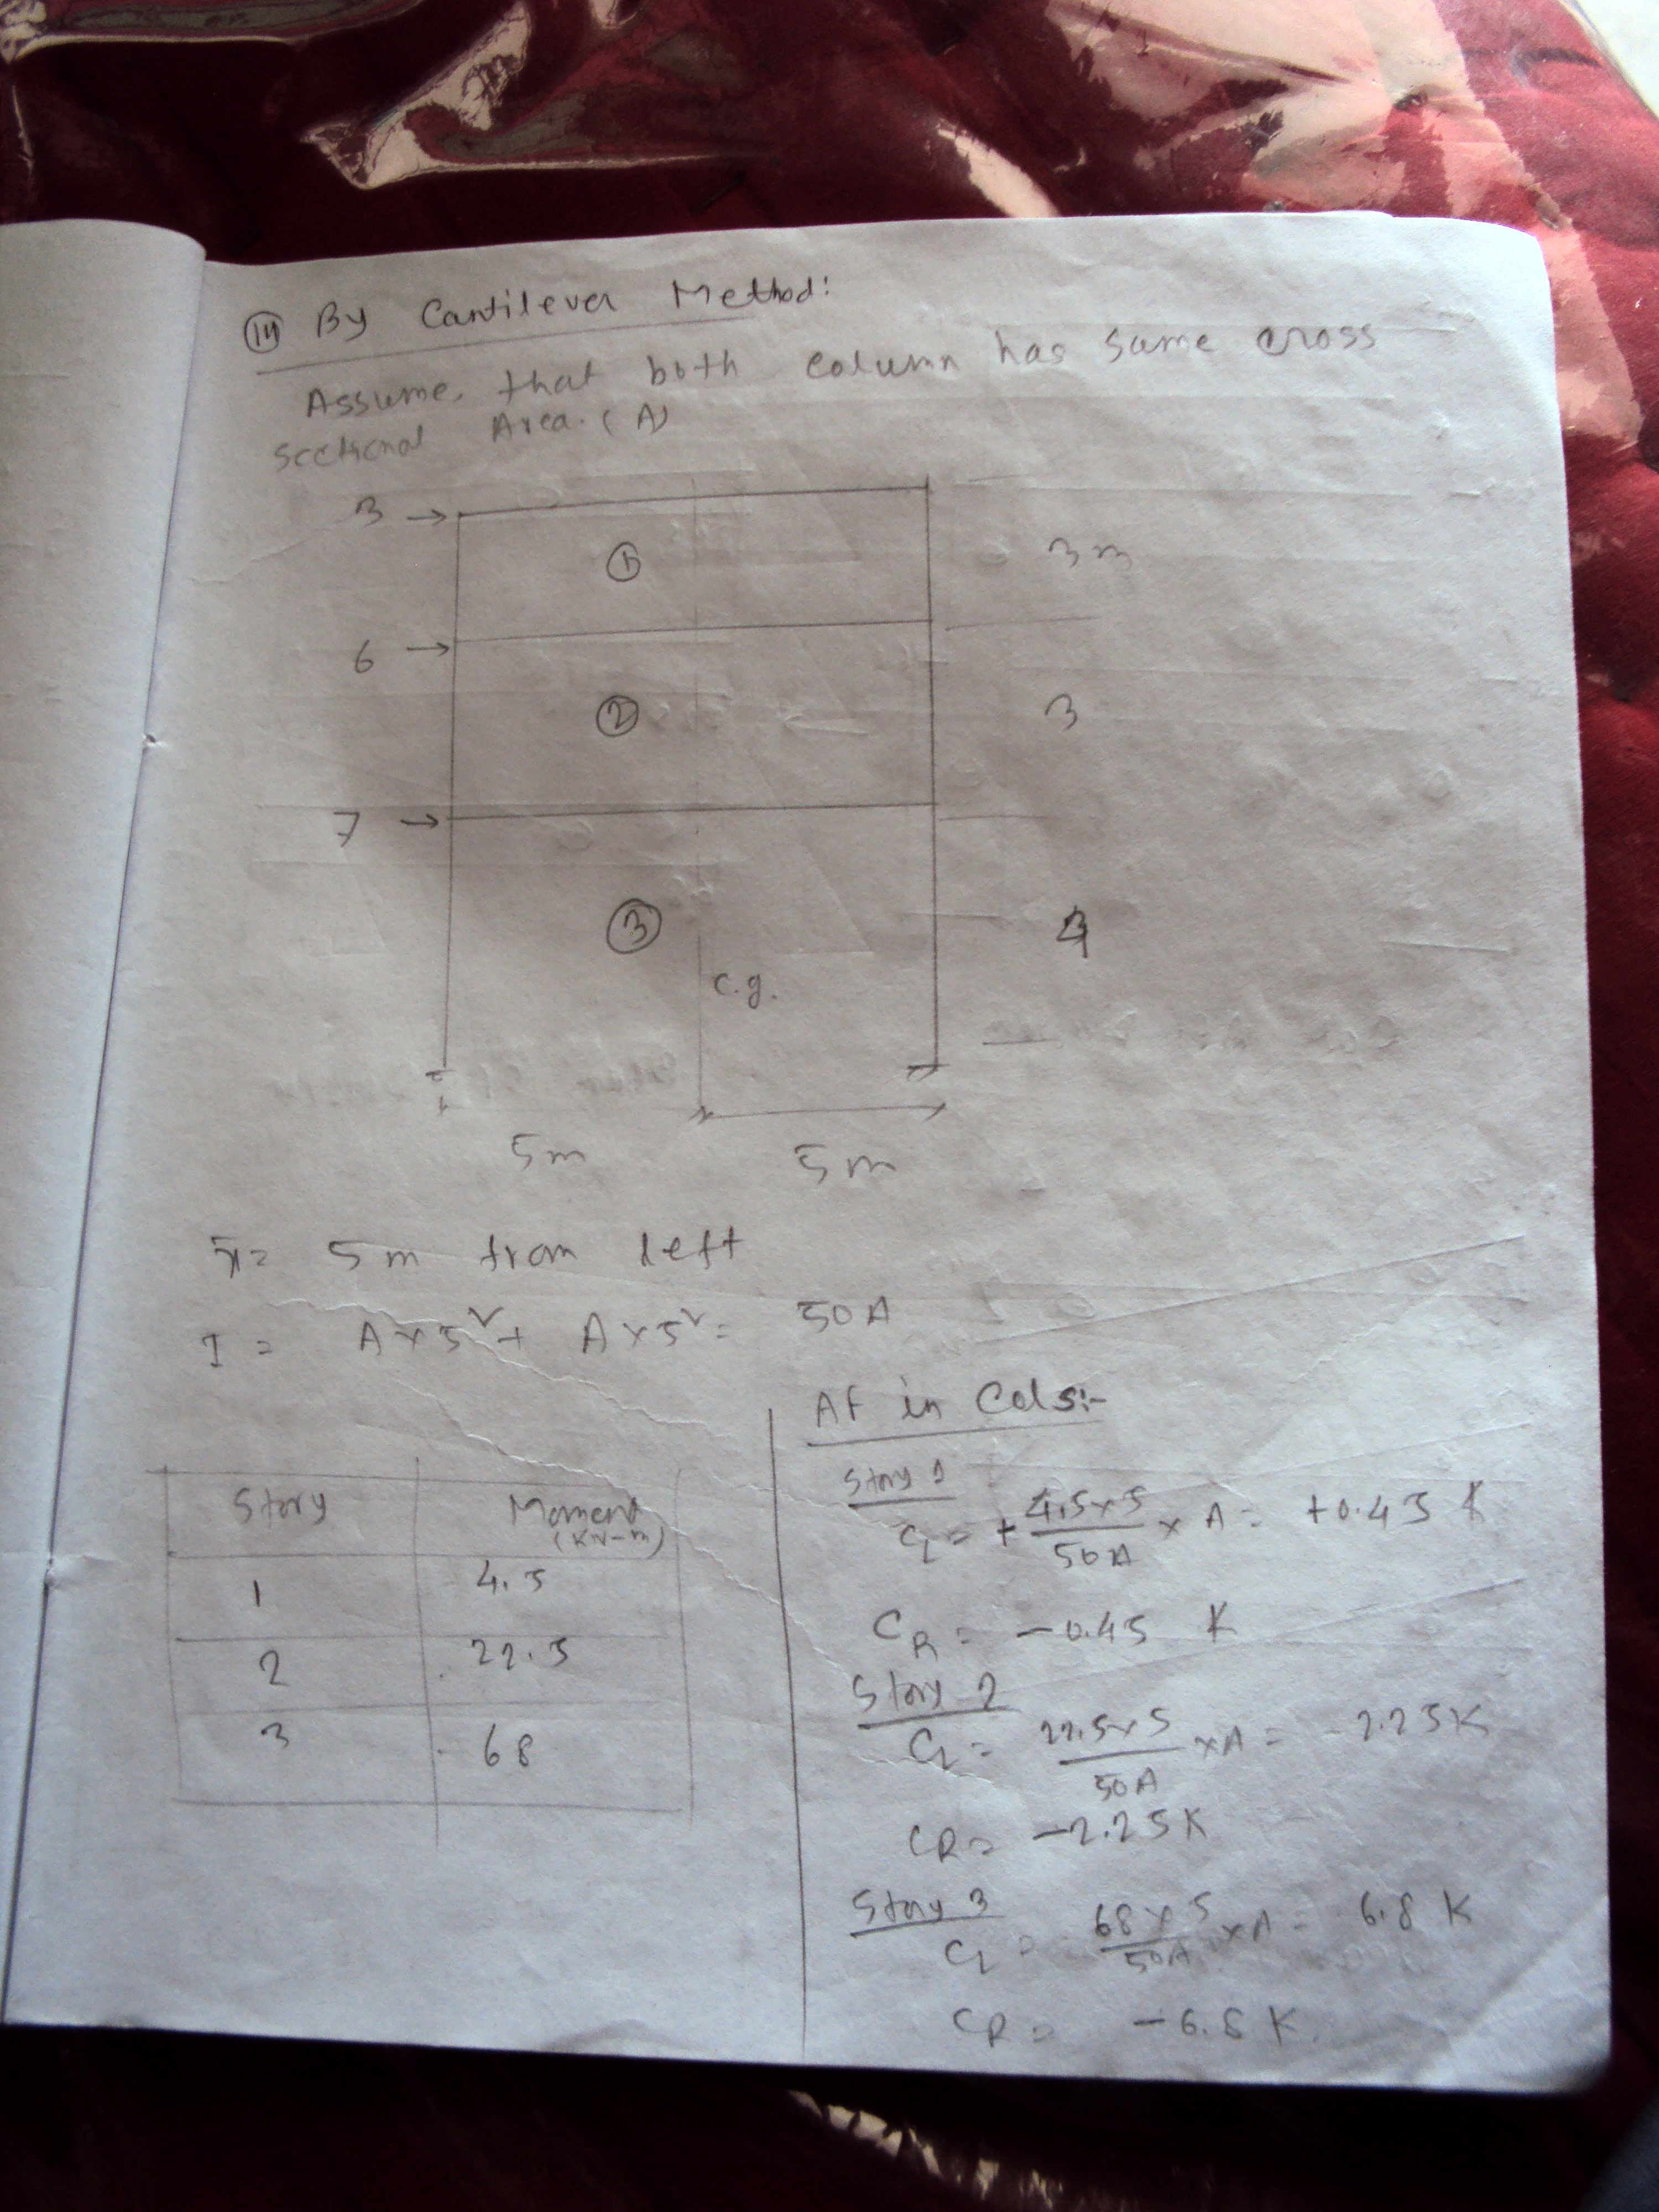 (14) By Cantilever Method:
Assume, that both column has same cross
sectional Area. (A)
3 →
① 3m
6 →
② 3
7 →
③ 4
c.g.
5m 5m
x̄ = 5m from left
I = A×5²+ A×5² = 50A
Story Moment
(KN-m)
1 4.5
2 22.5
3 68
AF in Cols:-
Story 1
C_L = + 4.5×5/50A × A = +0.45 K
C_R = -0.45 K
Story 2
C_L = 22.5×5/50A ×A = 2.25K
C_R = -2.25K
Story 3
C_L = 68×5/50A ×A = 6.8 K
C_R = -6.8 K.